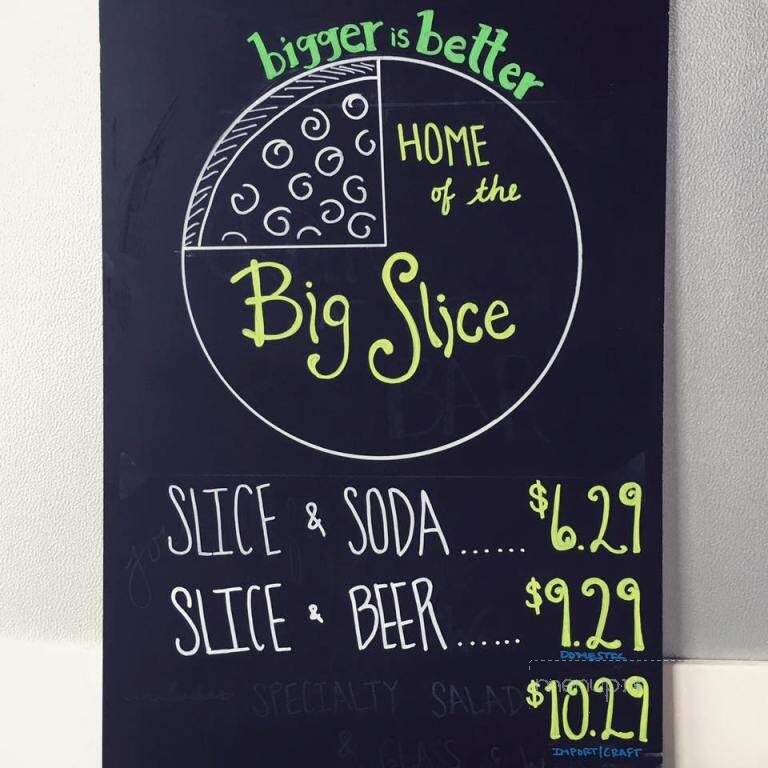 bigger is better
HOME
of the
Big Slice
BAR
SLICE & SODA ...... $6.29
SLICE & BEER ...... $9.29
DOMESTIC
SPECIALTY SALAD $10.29
& GLASS
IMPORT/CRAFT